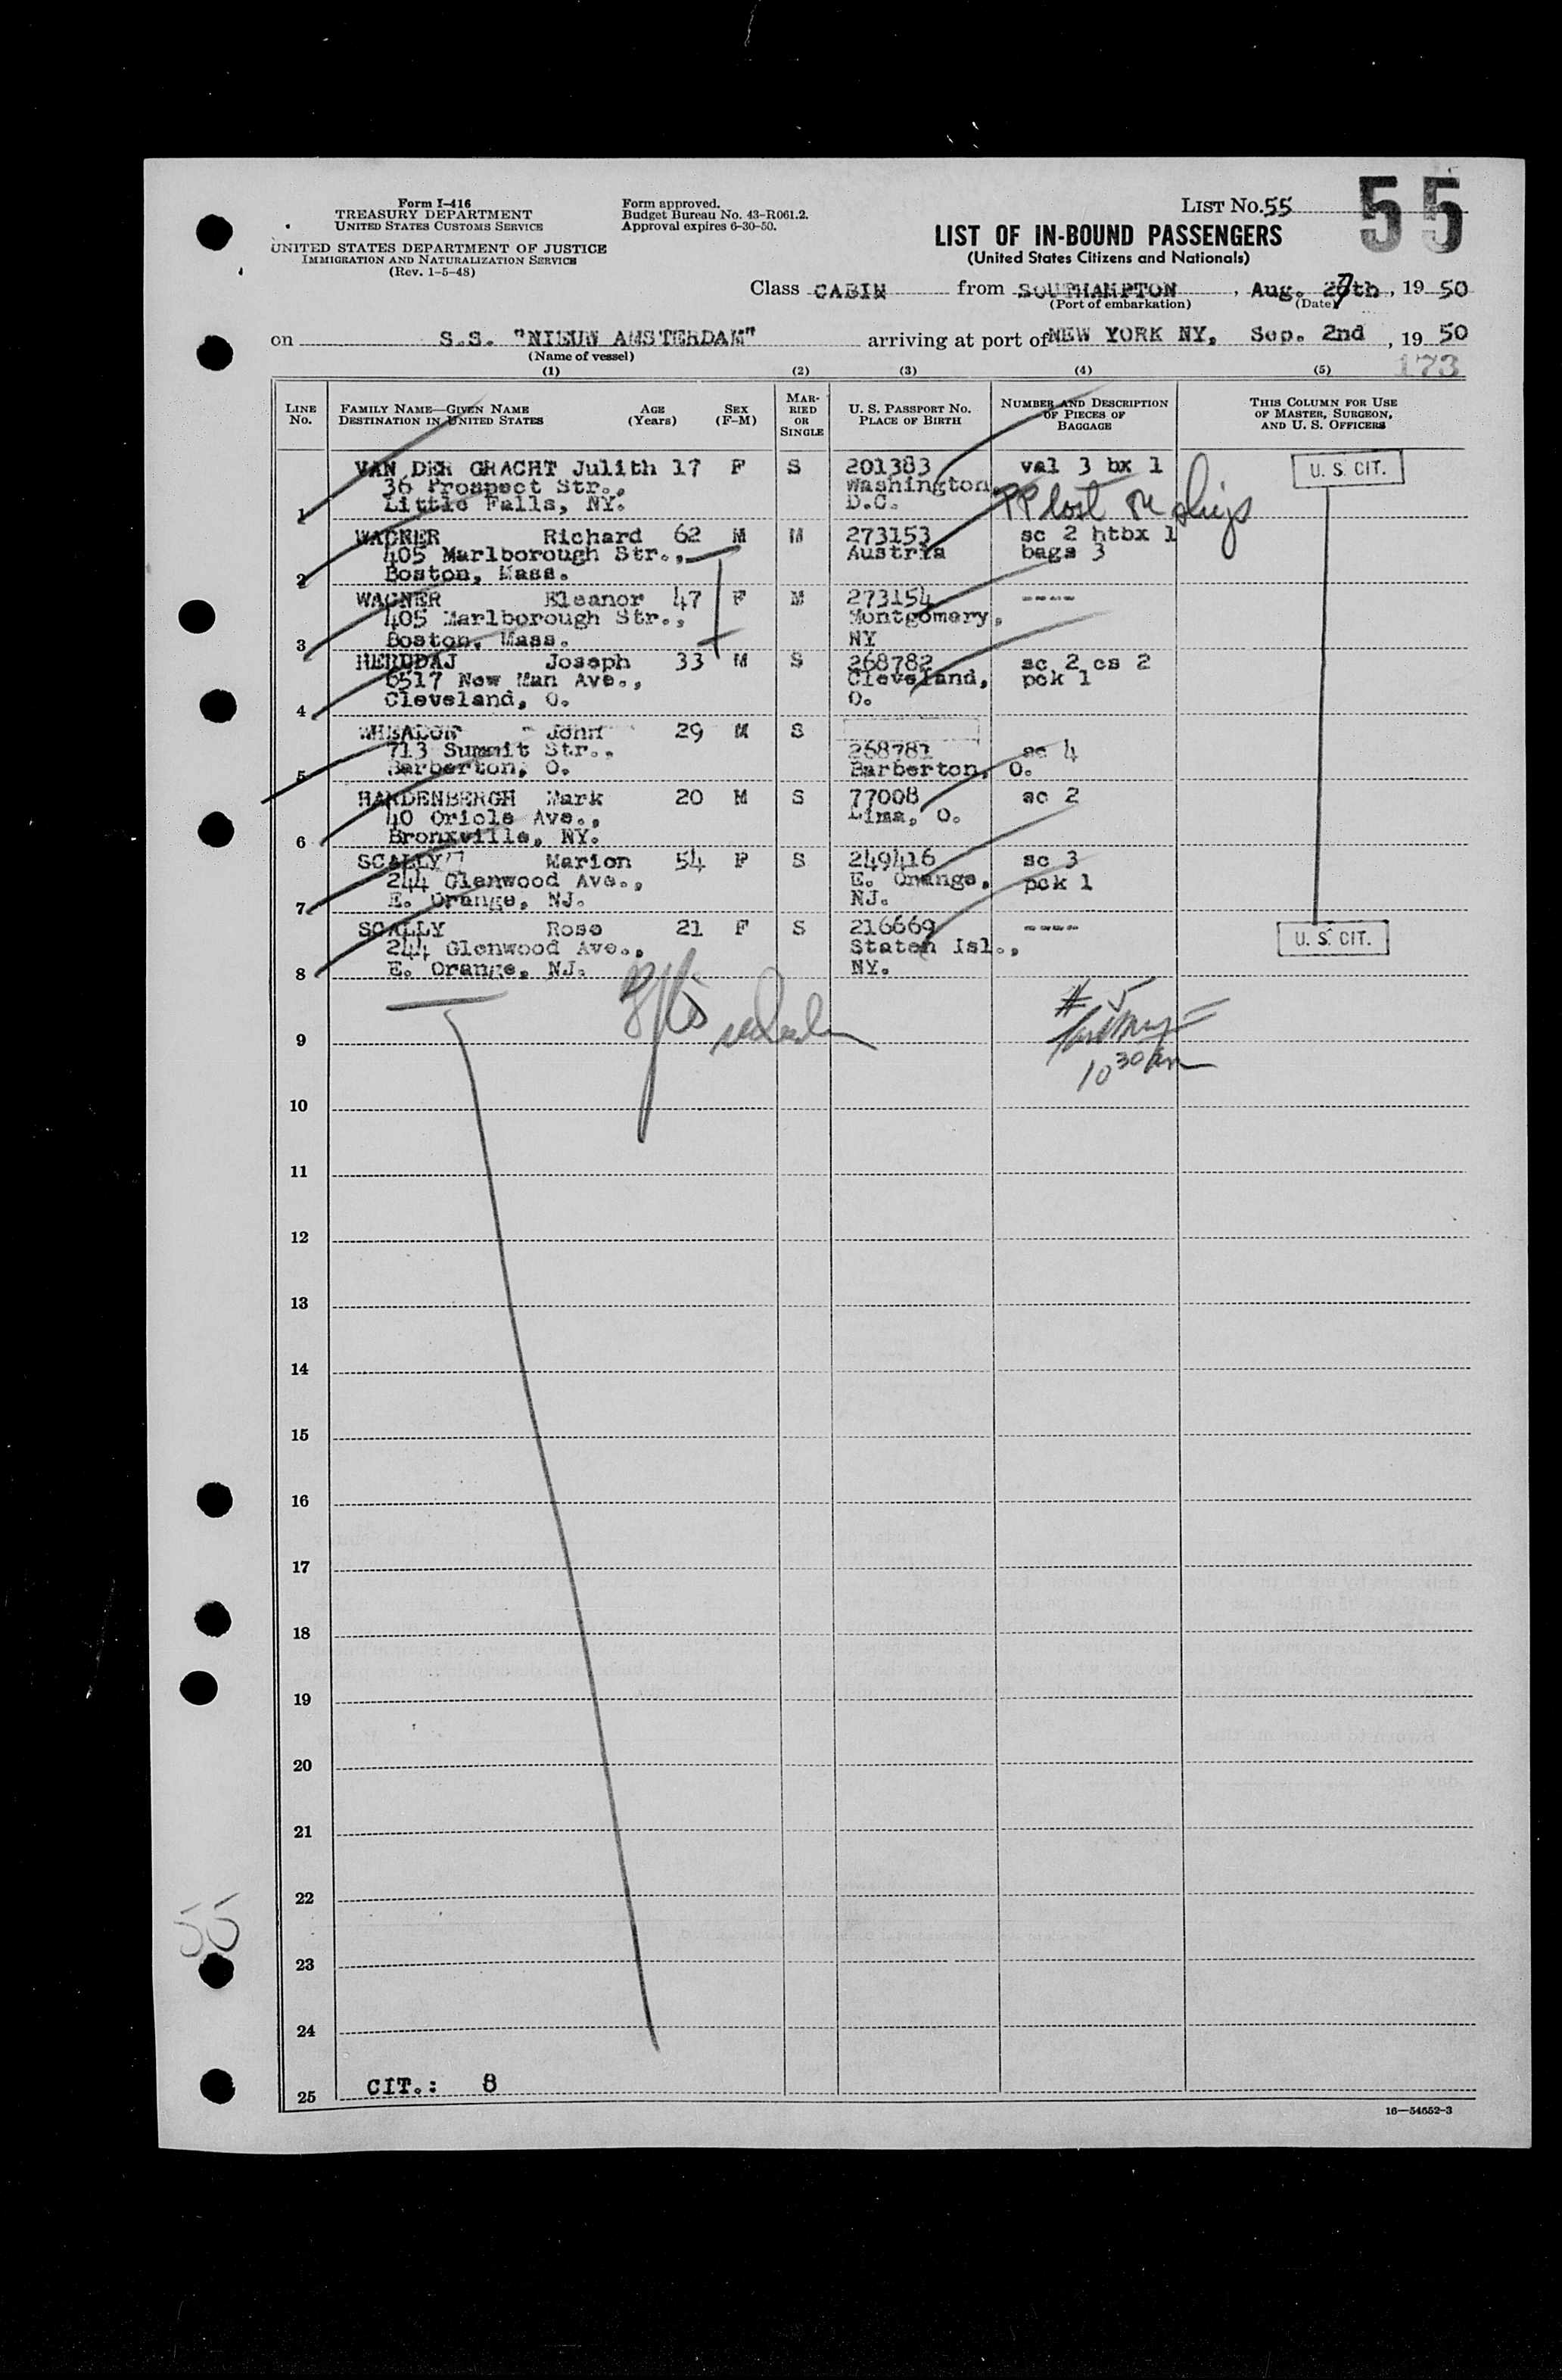 Form I-416
TREASURY DEPARTMENT
UNITED STATES CUSTOMS SERVICE
UNITED STATES DEPARTMENT OF JUSTICE
IMMIGRATION AND NATURALIZATION SERVICE
(Rev. 1-5-48)
Form approved.
Budget Bureau No. 43-R061.2.
Approval expires 6-30-50.
LIST NO. 55
55
LIST OF IN-BOUND PASSENGERS
(United States Citizens and Nationals)
Class CABIN from SOUTHAMPTON, Aug. 27th, 19 50
(Port of embarkation) (Date)
on S.S. "NIEUW AMSTERDAM" arriving at port of NEW YORK NY, Sep. 2nd, 19 50
(Name of vessel)
173
(1) (2) (3) (4) (5)
LINE NO. FAMILY NAME—GIVEN NAME DESTINATION IN UNITED STATES AGE (Years) SEX (F-M) MARRIED OR SINGLE U. S. PASSPORT NO. PLACE OF BIRTH NUMBER AND DESCRIPTION OF PIECES OF BAGGAGE THIS COLUMN FOR USE OF MASTER, SURGEON, AND U. S. OFFICERS
VAN DER GRACHT Julith 17 F S 201383 val 3 bx 1 U. S. CIT.
36 Prospect Str., Washington,
1 Little Falls, NY. D.C. PP lost on ship
WAGNER Richard 62 M M 273153 sc 2 htbx 1
405 Marlborough Str., Austria bags 3
2 Boston, Mass.
WAGNER Eleanor 47 F M 273154 ----
405 Marlborough Str., Montgomery,
3 Boston, Mass. NY
HERDDAJ Joseph 33 M S 268782 sc 2 cs 2
6517 New Man Ave., Cleveland, pck 1
4 Cleveland, O. O.
John 29 M S
713 Summit Str., 268781 sc 4
5 Barberton, O. Barberton, O.
HARDENBERGH Mark 20 M S 77008 sc 2
40 Oriole Ave., Lima, O.
6 Bronxville, NY.
SCALLY Marion 54 F S 249416 sc 3
244 Glenwood Ave., E. Orange, pck 1
7 E. Orange, NJ. NJ.
SCALLY Rose 21 F S 216669 ---- U. S. CIT.
244 Glenwood Ave., Staten Isl.,
8 E. Orange, NJ. NY.
# 5
9
10 30 am
10
11
12
13
14
15
16
17
18
19
20
21
22
55
23
24
25 CIT.: 8
16—54652-3